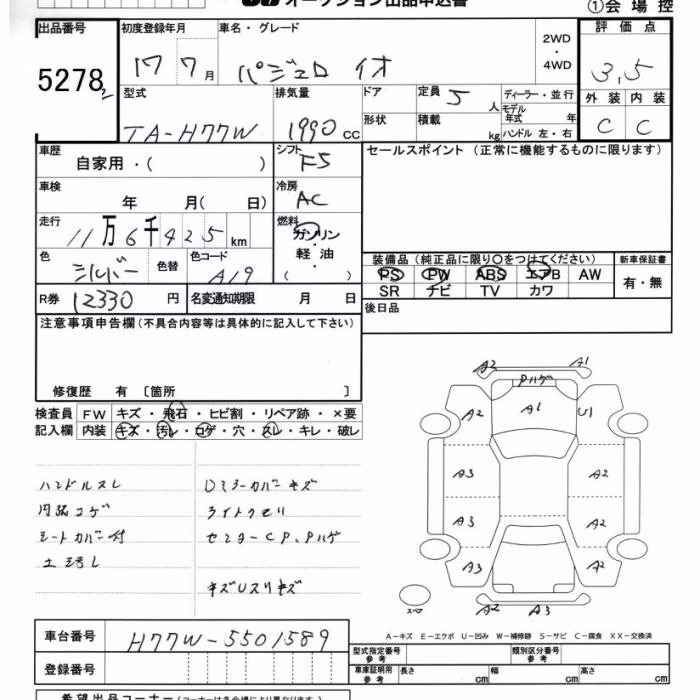 オークション出品申込書
①会場控
出品番号
5278
初度登録年月
17 7月
車名・グレード
パジェロ イオ
2WD
・
4WD
評価点
3.5
型式
TA-H77W
排気量
1990 cc
ドア
定員 5 人
ディーラー・並行
モデル年式 年
形状
積載 kg
ハンドル 左・右
外装 内装
C C
車歴
自家用・( )
シフト
F5
セールスポイント (正常に機能するものに限ります)
車検
年 月( 日)
冷房
AC
走行
11万6千425km
燃料
ガソリン
・
軽油
・
( )
色
シルバー
色替
色コード
A19
装備品(純正品に限り○をつけてください)
新車保証書
PS PW ABS エアB AW
有・無
SR ナビ TV カワ
R券 12330 円
名変通知期限 月 日
後日品
注意事項申告欄(不具合内容等は具体的に記入して下さい)
修復歴 有 〔箇所 〕
検査員
記入欄
FW キズ・飛石・ヒビ割・リペア跡・×要
内装 キズ・汚レ・コゲ・穴・スレ・キレ・破レ
ハンドルスレ
内張コゲ
シートカバー付
Dミラーカバーキズ
ライトクモリ
センターCP、Pハゲ
A2 A1
Pハゲ
A2 A1 U1
A3 A2
A3 A2
A3 A2
A2 A3
スペア
A-キズ E-エクボ U-凹み W-補修跡 S-サビ C-腐食 XX-交換済
車台番号
H77W-5501589
登録番号
型式指定番号
参考
類別区分番号
参考
車庫証明用
参考
長さ cm
幅 cm
高さ cm
希望出品コーナー(コーナーは各会場により異なります。)